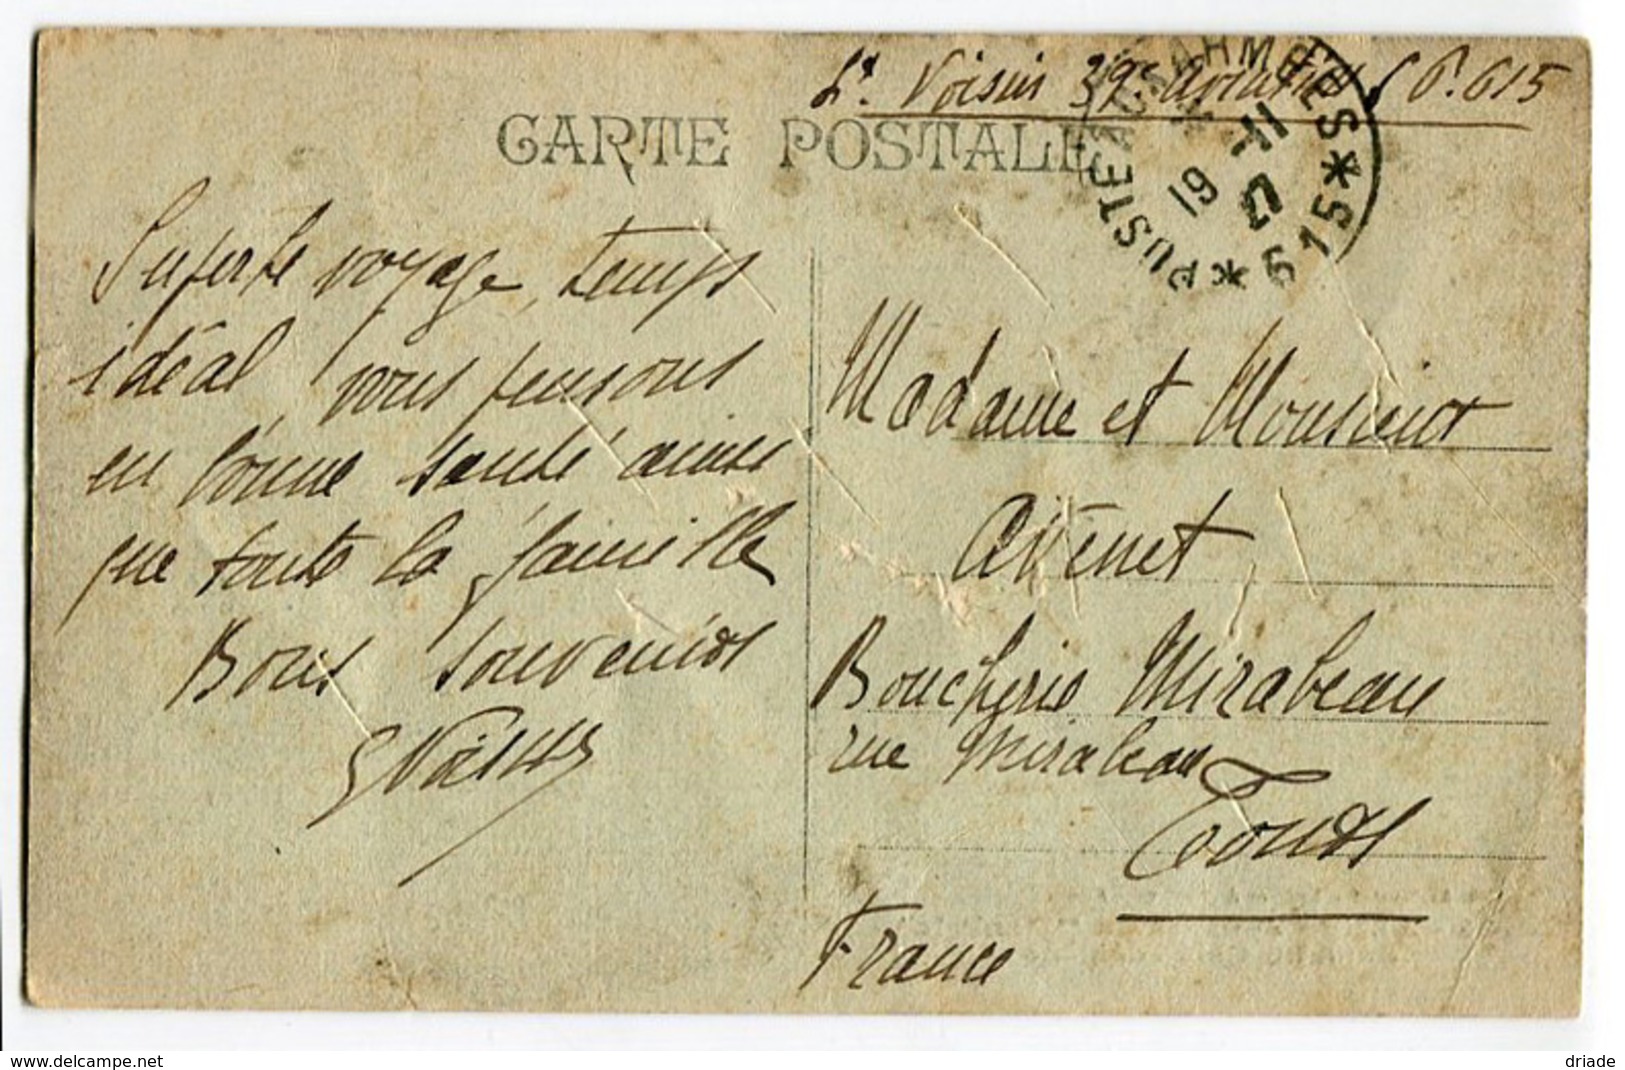 Lt. Voisin 39e aviation S.P. 615
CARTE POSTALE
POSTE AUX ARMÉES * 615 *
19 -11 27
Superbe voyage, temps
idéal, vous pensons
en bonne santé ainsi
que toute la famille
Bons souvenirs
GVoisin
Madame et Monsieur
Avenet
Boucherie Mirabeau
rue Mirabeau
Tours
France
driade